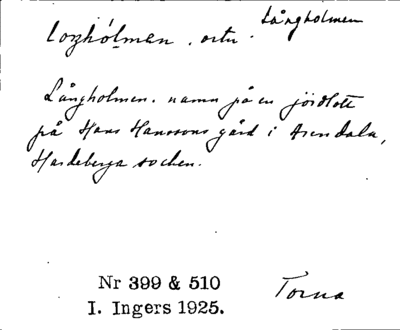 lozhólman, ortn. Långholmen
Långholmen. namn på en jordlott
på Hans Hanssons gård i Arendala,
Hardeberga socken.
Nr 399 & 510
I. Ingers 1925.
Torna